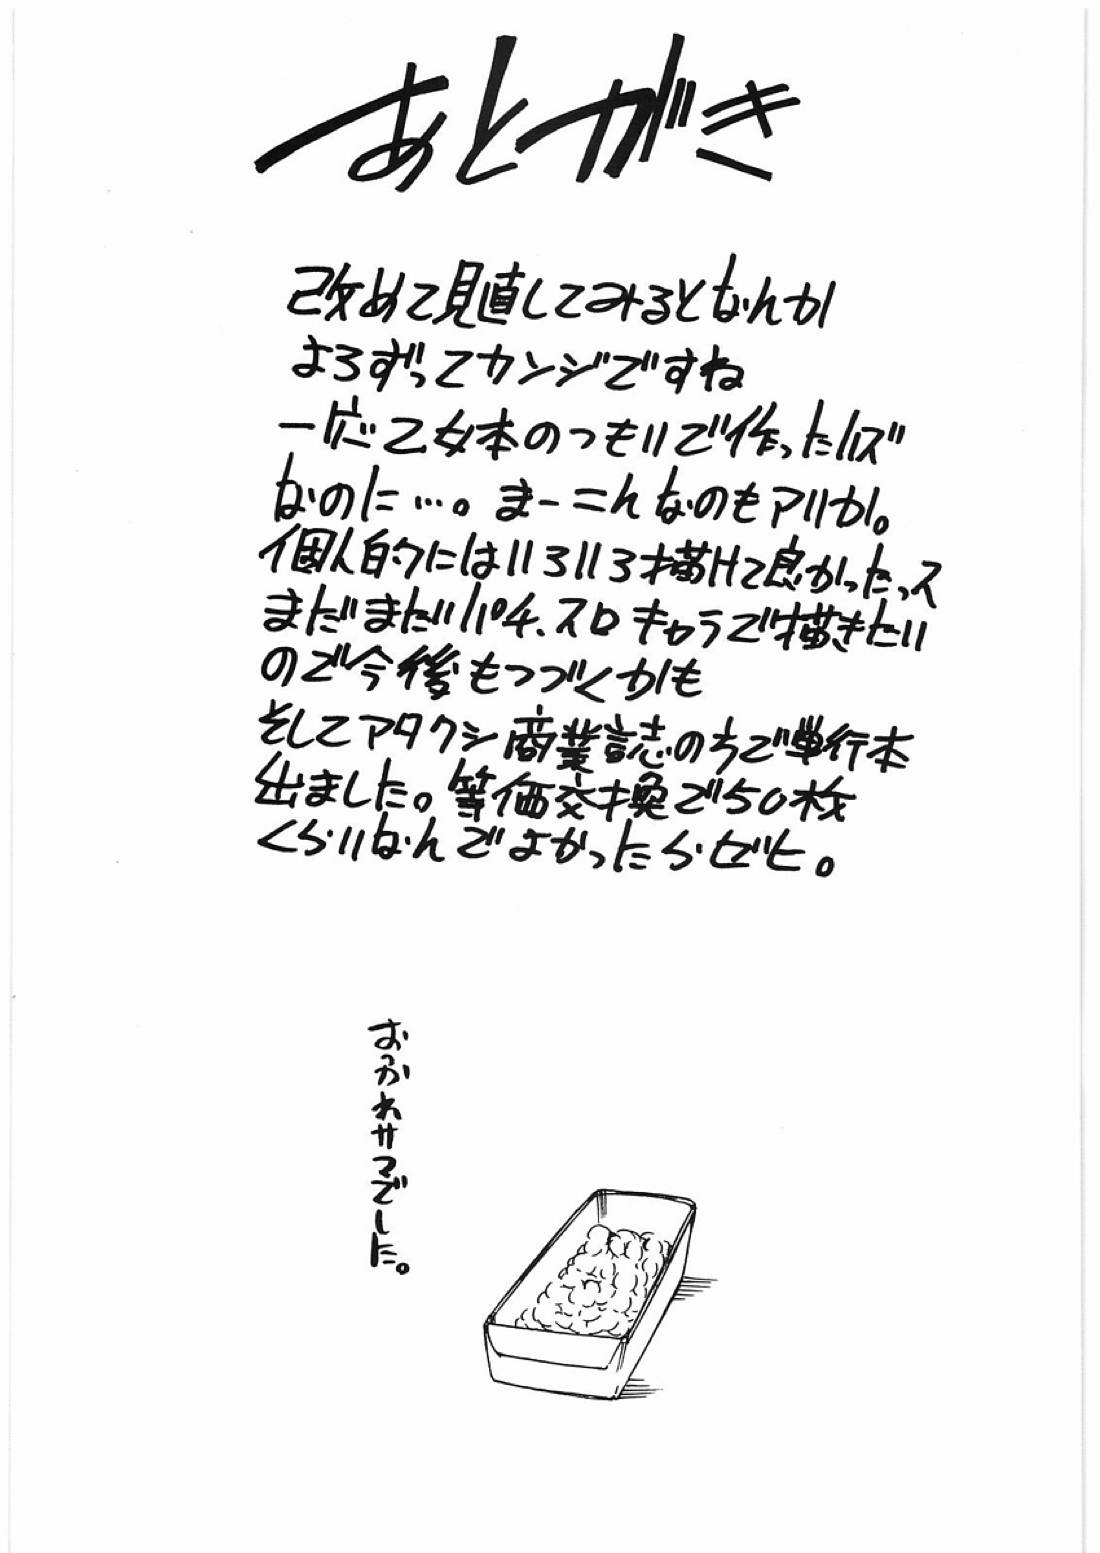 あとがき
改めて見直してみるとなんか
よろずってカンジですね
一応乙女本のつもりで作ったハズ
なのに…。まーこんなのもアリか。
個人的にはいろいろ描けて良かったっス
まだまだパチ、スロキャラで描きたい
ので今後もつづくかも
そしてアタクシ商業誌の方で単行本
出ました。等価交換で50枚
くらいなんでよかったらゼヒ。
おつかれサマでした。